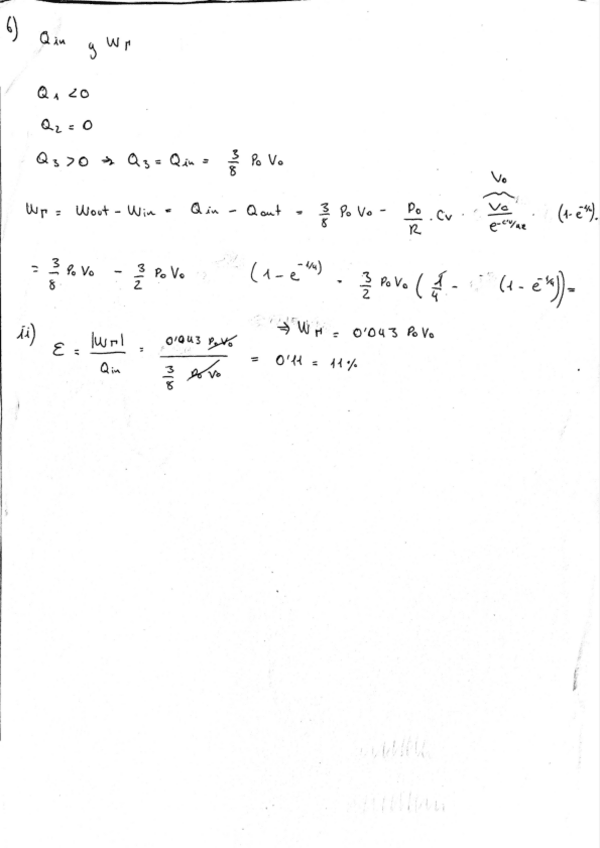 6) Qin y Wp
Q1 < 0
Q2 = 0
Q3 > 0 → Q3 = Qin = 3/8 P0 V0
V0
Wp = Wout - Win = Qin - Qout = 3/8 P0 V0 - P0/R · Cv · · (1 - e^-1/4).
= 3/8 P0 V0 - 3/2 P0 V0 (1 - e^-1/4) = 3/2 P0 V0 (1/4 - (1 - e^-1/4)) =
⇒ Wp = 0'043 P0 V0
ii) ε = |Wp|/Qin = 0'043 P0 V0 / 3/8 P0 V0 = 0'11 = 11%